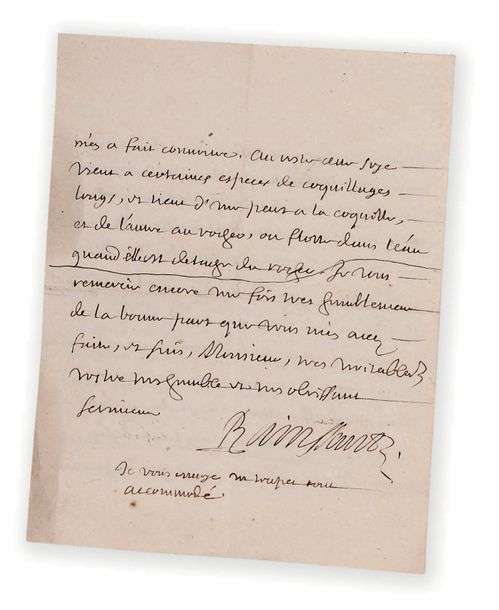 m'es a fait connoitre. Au reste cette soye
vient a certaines especes de coquillages
longs, et tient d'un peut a la coquille,
et de l'autre au rocher, ou flotte dans l'eau
quand elle est detachee du rocher. Je vous
remercie encore une fois tres humblement
de la bonne part que vous m'en avez
faite, et suis, Monsieur, tres
votre tres humble et tres obeissant
serviteur
Rainssant
Je vous envoye un tout
accommodé.